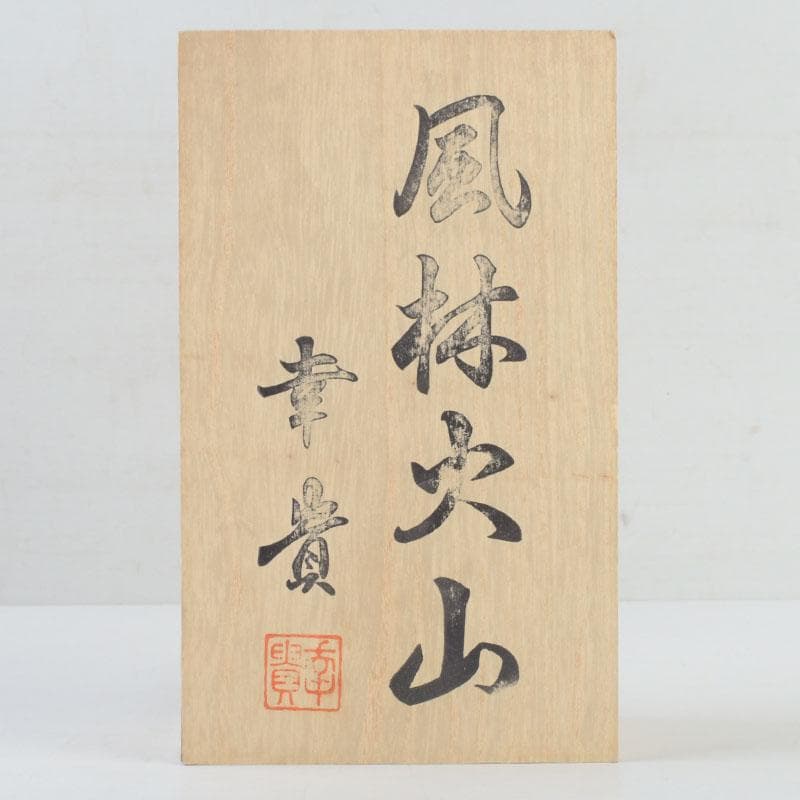 風林火山
幸貴
幸貴